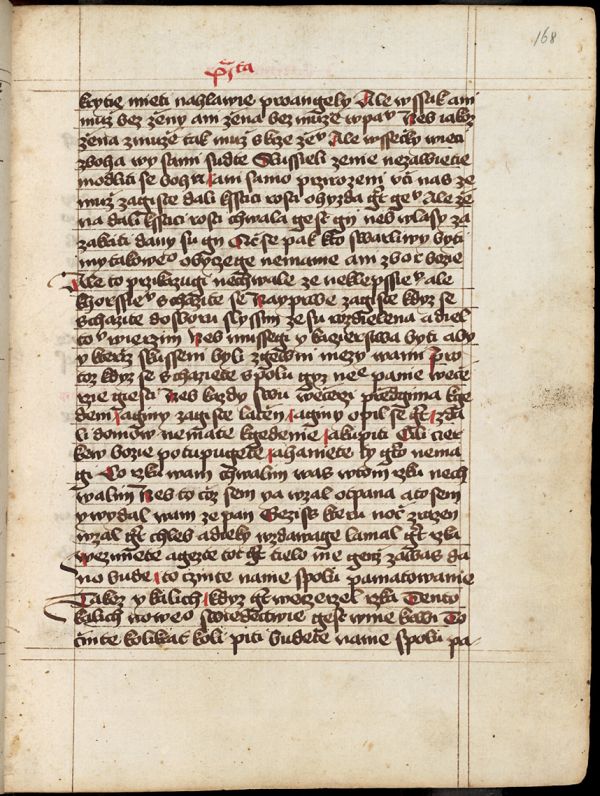 168
p̃ta
krytie mieti nahlawie proangely Ale wssak ani
muz bez zeny ani zena bez muze wpanu Neb iakoz
zena zmuze tak muz skrze zenu Ale wssecky wieci
zboha wy sami sudte Slussieli zenie nezawiecie
modliti se bohu ani samo przirozeni uci nas ze
muz zagiste dali kssticu rosti ohyzda gest gemu Ale ze
na dali kssticu rosti chwala gest gn neb wlasy za
zakriti dany su gn Ac se pak kto swarliwy byti
my takoweo obyczege nemame ani zbor bozie
Ale to przikazugi nechwale ze neklepssiemu ale
khorssiemu schazite se Nayprwe zagiste kdyz se
schazite dosboru slyssim ze su rozdielena a diel
to wierzim Neb mussegi y kaczierstwa byti aby
y kterz skussem byli zgewni mezy wami Pro
toz kdyz se schaziete spolu gyz nee panie wece
rze giesti Neb kazdy swu weczerz przedgima kge
deni aginy zagiste lacen aginy opil se gest zda
li domow nemate kgedenie akupiti Cili cier
kew bozie potupugete ahaniete ty gesto nema
gi Co rzku wam chwalim was wtom rzku nech
walim Neb to coz sem ya wzal ocpana a to sem
y wydal wam ze pan Geziss kteru noc zrazen
wzal gest chleb a dieky wzdawage lamal gest rzka
wezmiete agezte tot gest tielo me genz zawas da
no bude to czinte name spolu pamatowanie
Takez y kalich kdyz gest weczerzel rzka Tento
kalich noweo swiedectwie gest wme krwi To
cinte kolikrat koli piti budete name spolu pa